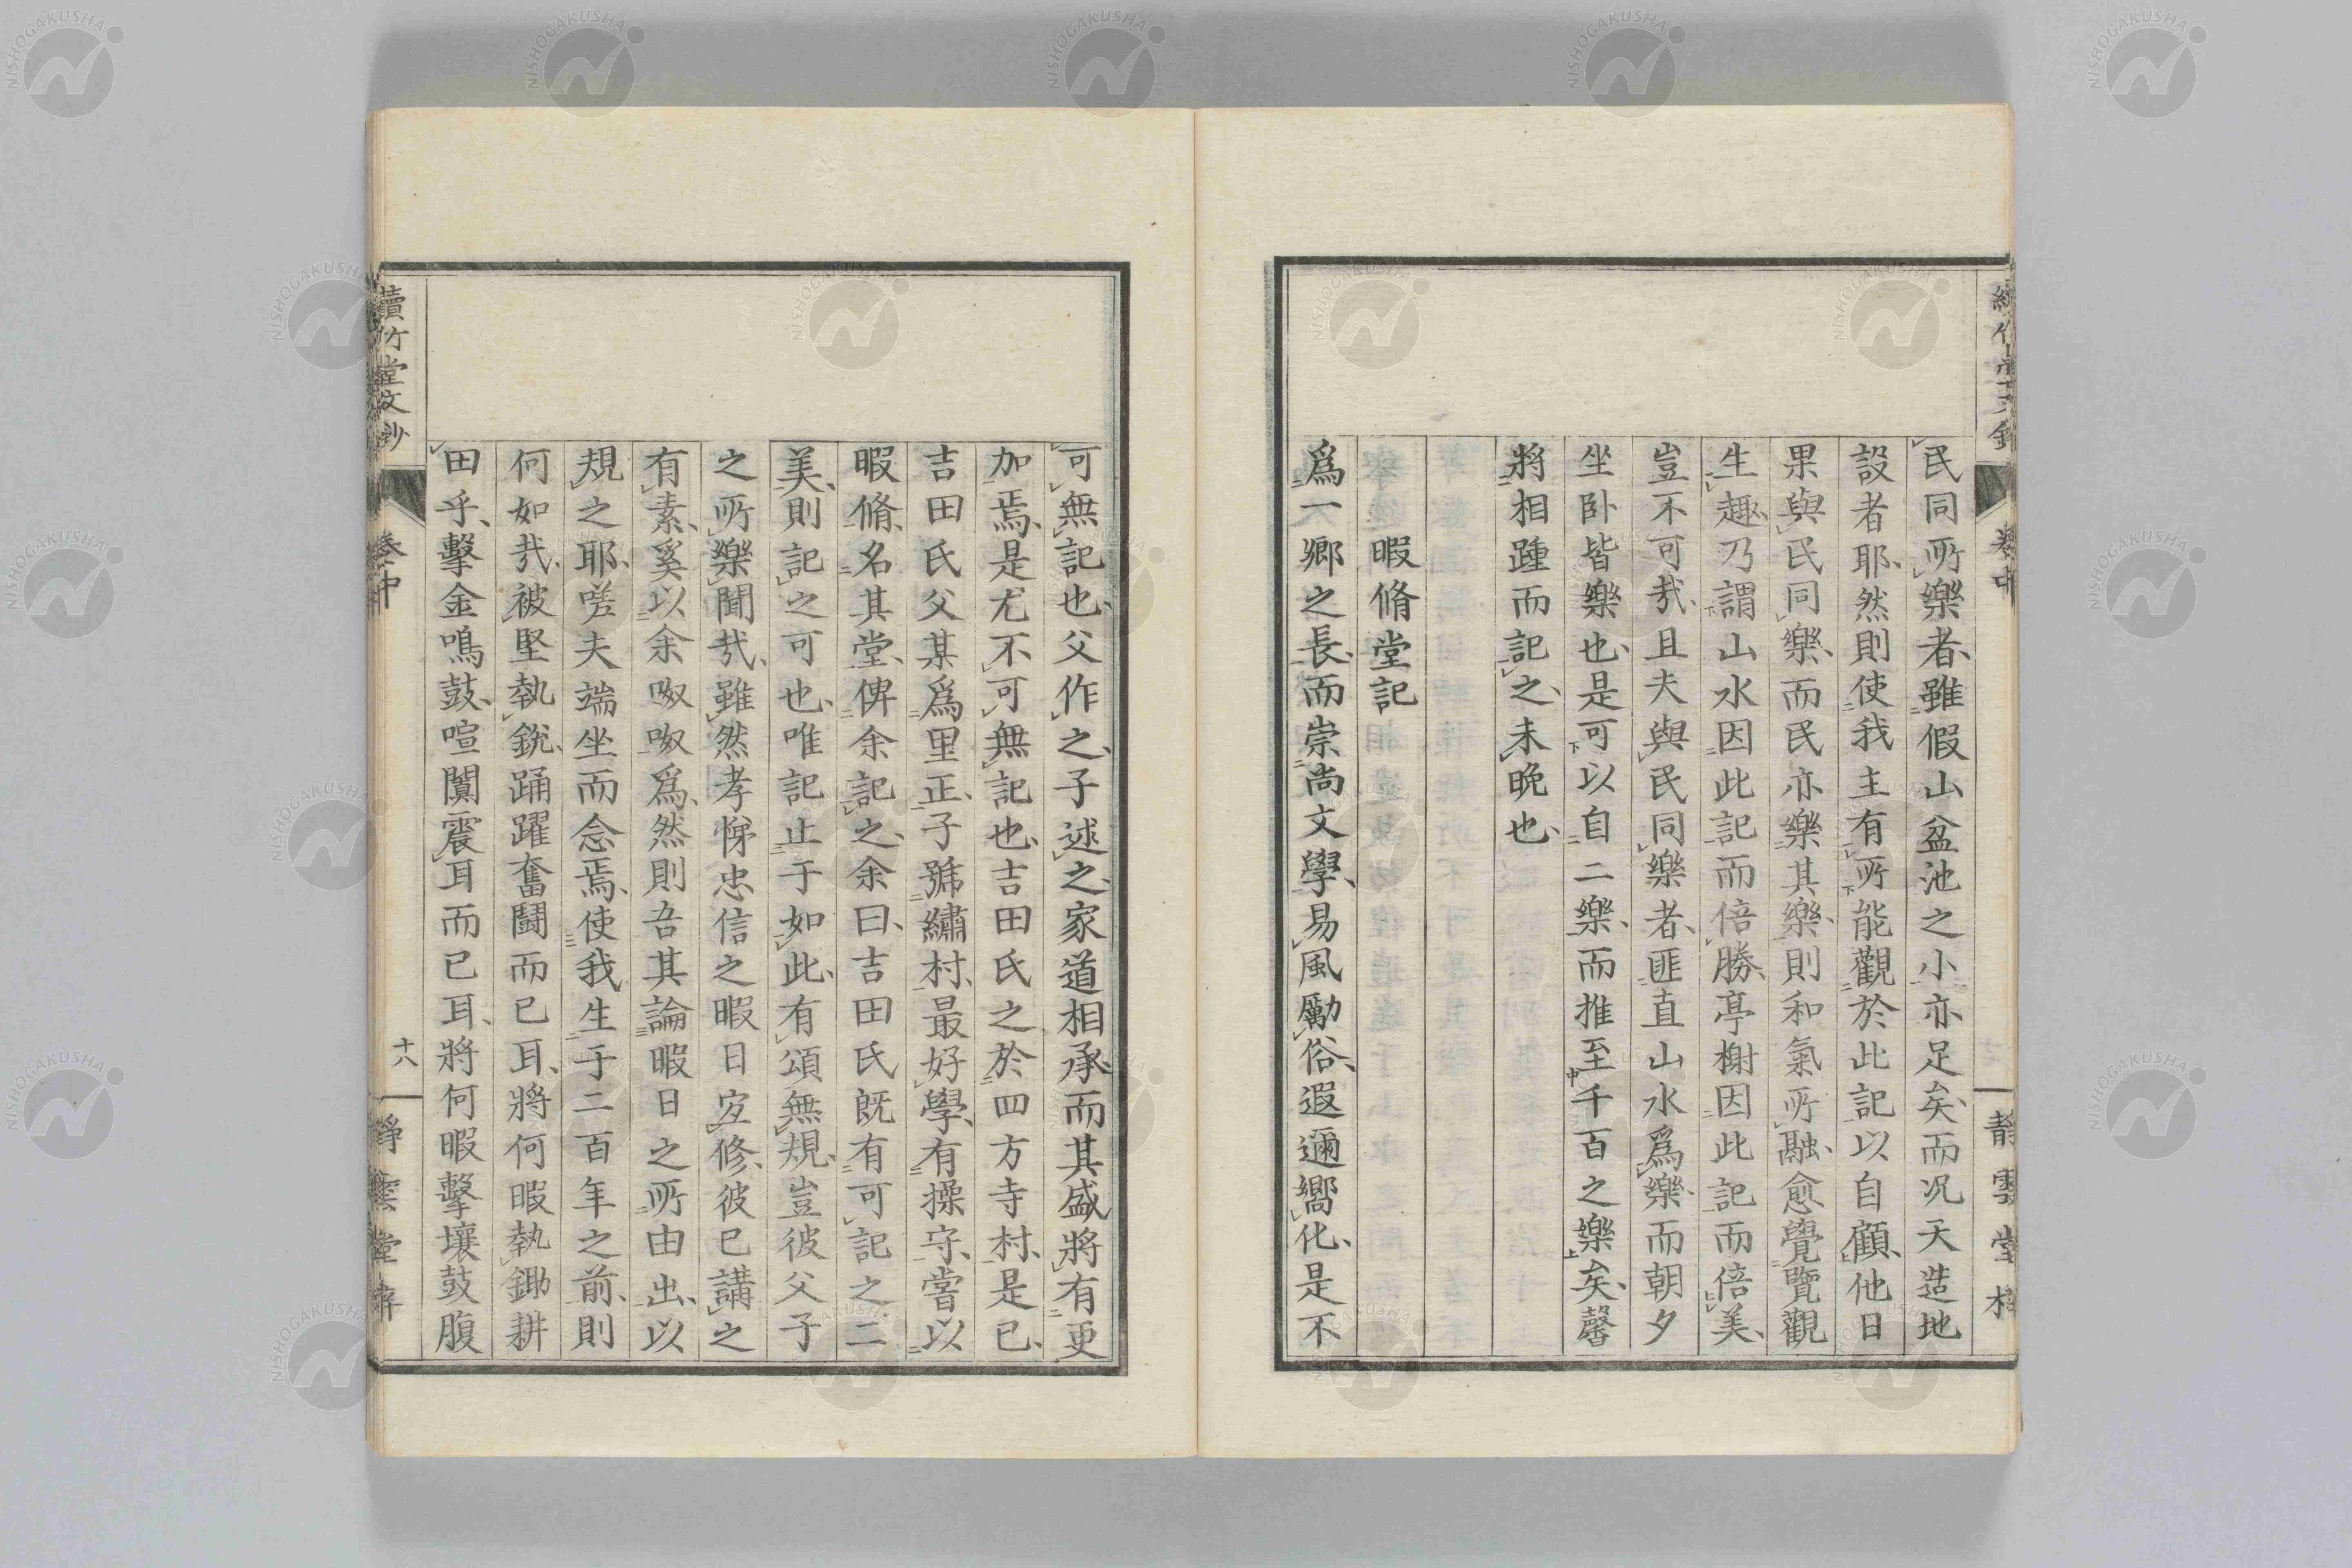 民同所樂者、雖假山盆池之小亦足矣、而況天造地
設者耶、然則使我主有所能觀於此記以自顧、他日
果與民同樂、而民亦樂其樂、則和氣所融、愈覺覽觀
生趣、乃謂山水因此記而倍勝、亭榭因此記而倍美、
豈不可哉、且夫與民同樂者、匪直山水爲樂、而朝夕
坐卧皆樂也、是可以自二樂、而推至千百之樂矣、馨
將相踵而記之、未晩也、
暇脩堂記
爲一鄉之長、而崇尚文學、易風勵俗、遐邇嚮化、是不
可無記也、父作之、子述之、家道相承、而其盛將有更
加焉、是尤不可無記也、吉田氏之於四方寺村、是已、
吉田氏父某爲里正、子號繡村、最好學、有操守、嘗以
暇脩名其堂、俾余記之、余曰、吉田氏旣有可記之二
美、則記之可也、唯記止于如此、有頌無規、豈彼父子
之所樂聞哉、雖然孝悌忠信之暇日宜修、彼已講之
有素、奚以余呶呶爲、然則吾其論暇日之所由出、以
規之耶、嗟夫端坐而念焉、使我生于二百年之前、則
何如哉、被堅執銳、踊躍奮鬪而已耳、將何暇執鋤耕
田乎、擊金鳴鼓、喧闐震耳而已耳、將何暇擊壤鼓腹
讀竹堂文鈔
卷中
十八
靜雲堂梓